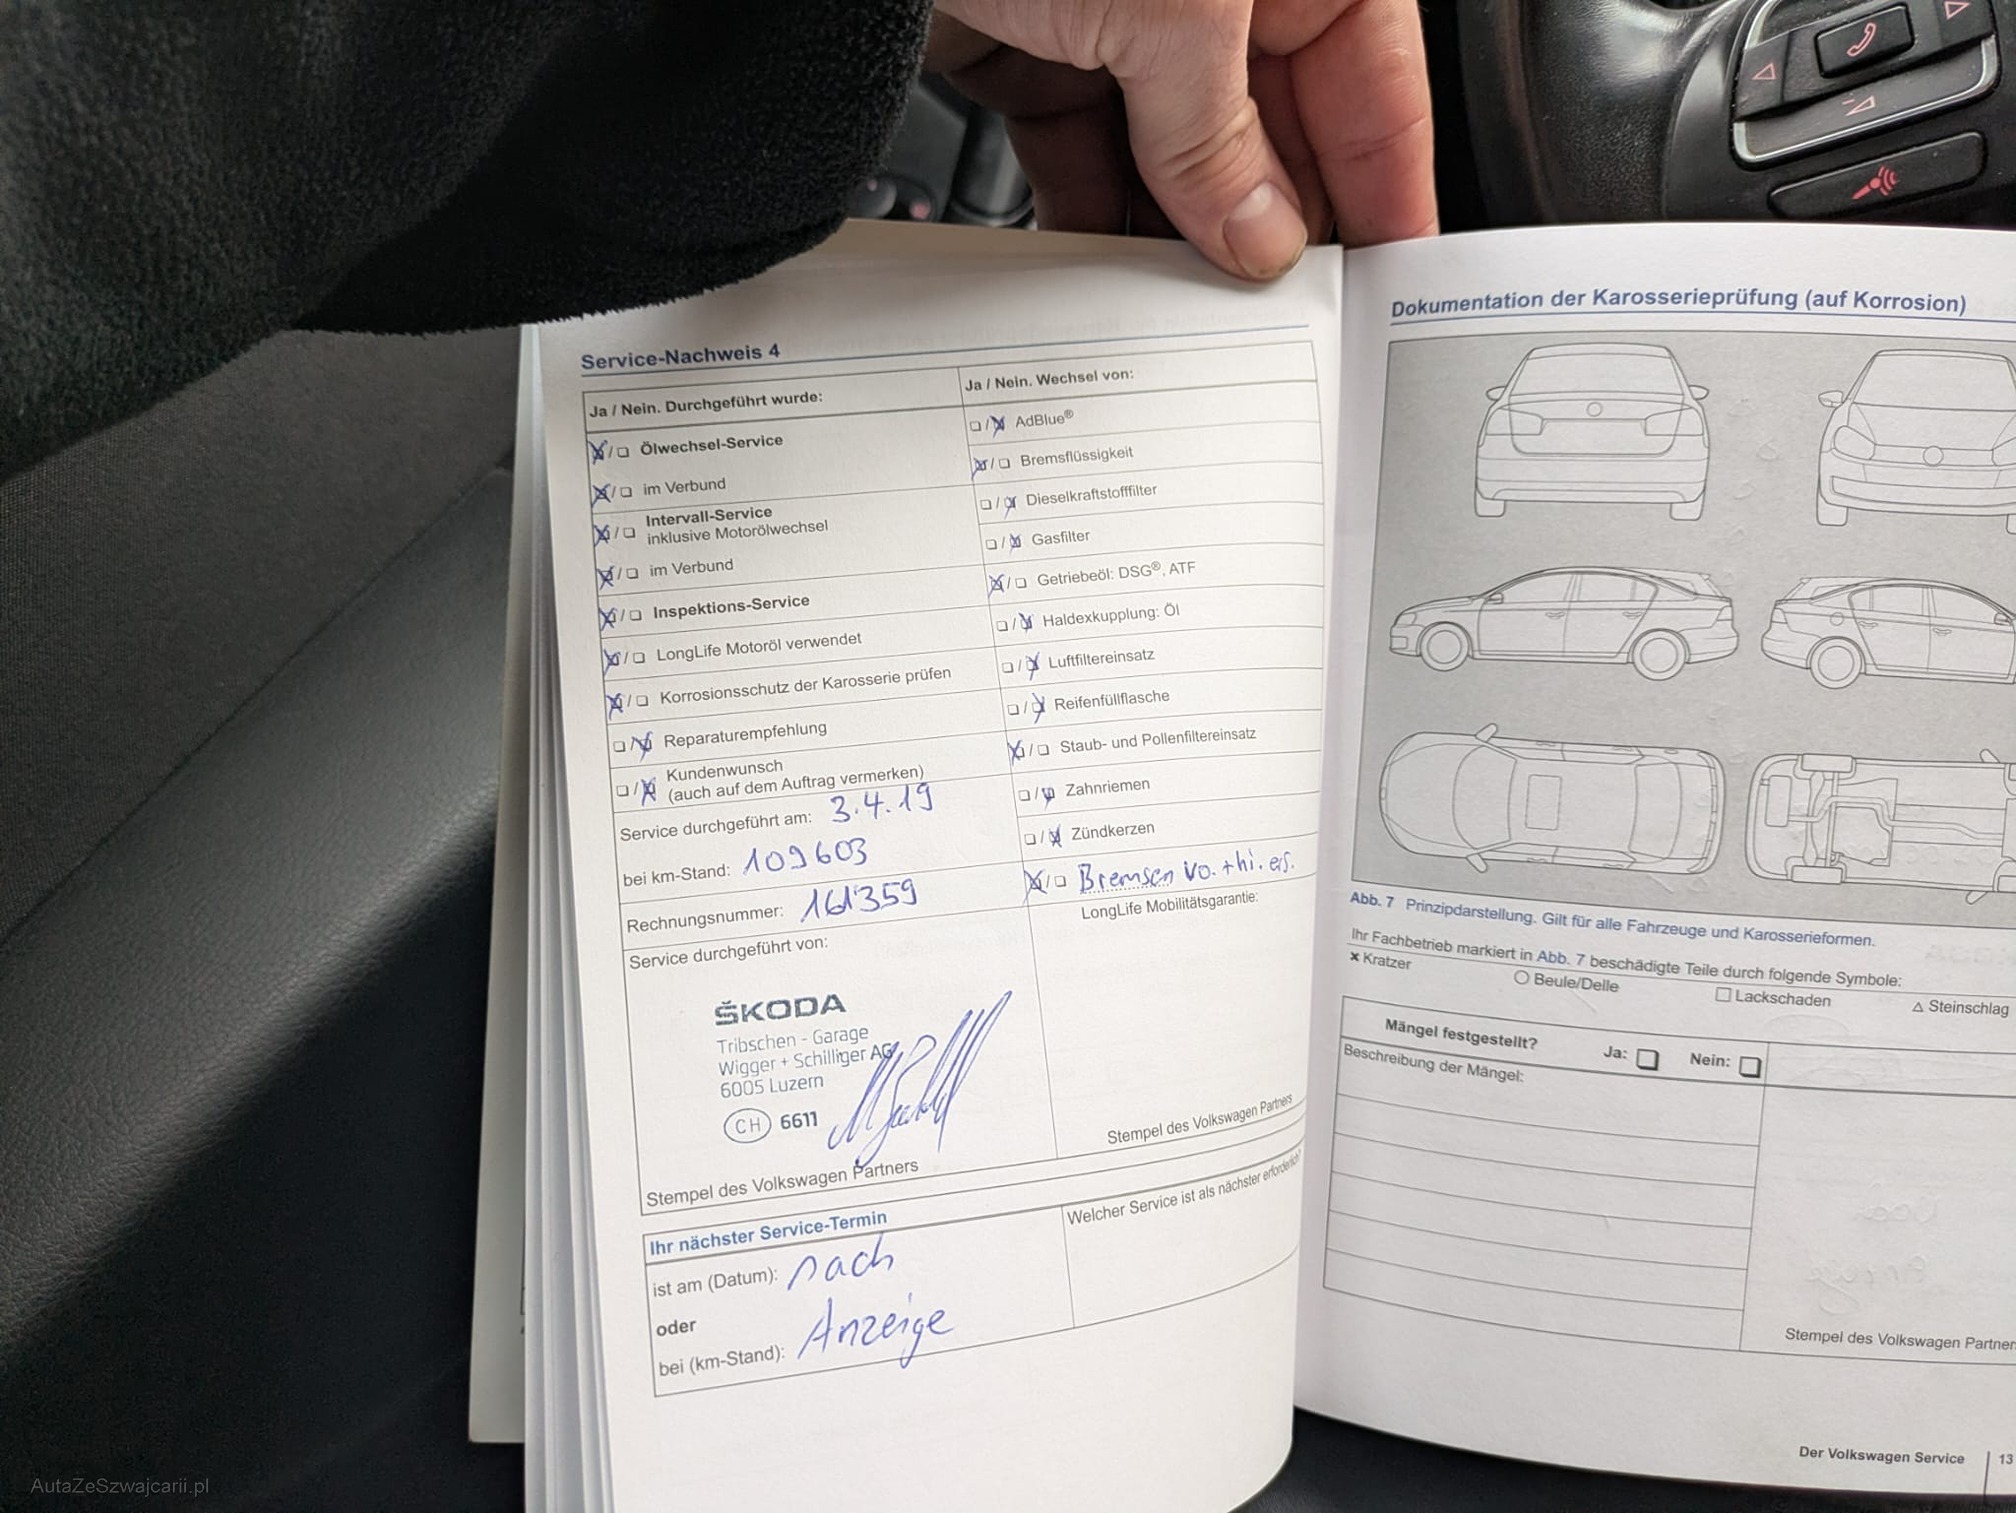 Service-Nachweis 4
Ja / Nein. Durchgeführt wurde:
Ölwechsel-Service
im Verbund
Intervall-Service
inklusive Motorölwechsel
im Verbund
Inspektions-Service
LongLife Motoröl verwendet
Korrosionsschutz der Karosserie prüfen
Reparaturempfehlung
Kundenwunsch
(auch auf dem Auftrag vermerken)
Service durchgeführt am: 3.4.19
bei km-Stand: 109603
Rechnungsnummer: 161359
Service durchgeführt von:
ŠKODA
Tribschen - Garage
Wigger + Schilliger AG
6005 Luzern
CH 6611
Stempel des Volkswagen Partners
Ja / Nein. Wechsel von:
AdBlue®
Bremsflüssigkeit
Dieselkraftstofffilter
Gasfilter
Getriebeöl: DSG®, ATF
Haldexkupplung: Öl
Luftfiltereinsatz
Reifenfüllflasche
Staub- und Pollenfiltereinsatz
Zahnriemen
Zündkerzen
Bremsen vo. + hi. ers.
LongLife Mobilitätsgarantie:
Stempel des Volkswagen Partners
Ihr nächster Service-Termin
ist am (Datum): nach
oder
bei (km-Stand): Anzeige
Welcher Service ist als nächster erforderlich?
Dokumentation der Karosserieprüfung (auf Korrosion)
Abb. 7 Prinzipdarstellung. Gilt für alle Fahrzeuge und Karosserieformen.
Ihr Fachbetrieb markiert in Abb. 7 beschädigte Teile durch folgende Symbole:
× Kratzer
○ Beule/Delle
□ Lackschaden
△ Steinschlag
Mängel festgestellt? Ja: Nein:
Beschreibung der Mängel:
Stempel des Volkswagen Partner
Der Volkswagen Service 13
AutaZeSzwajcarii.pl